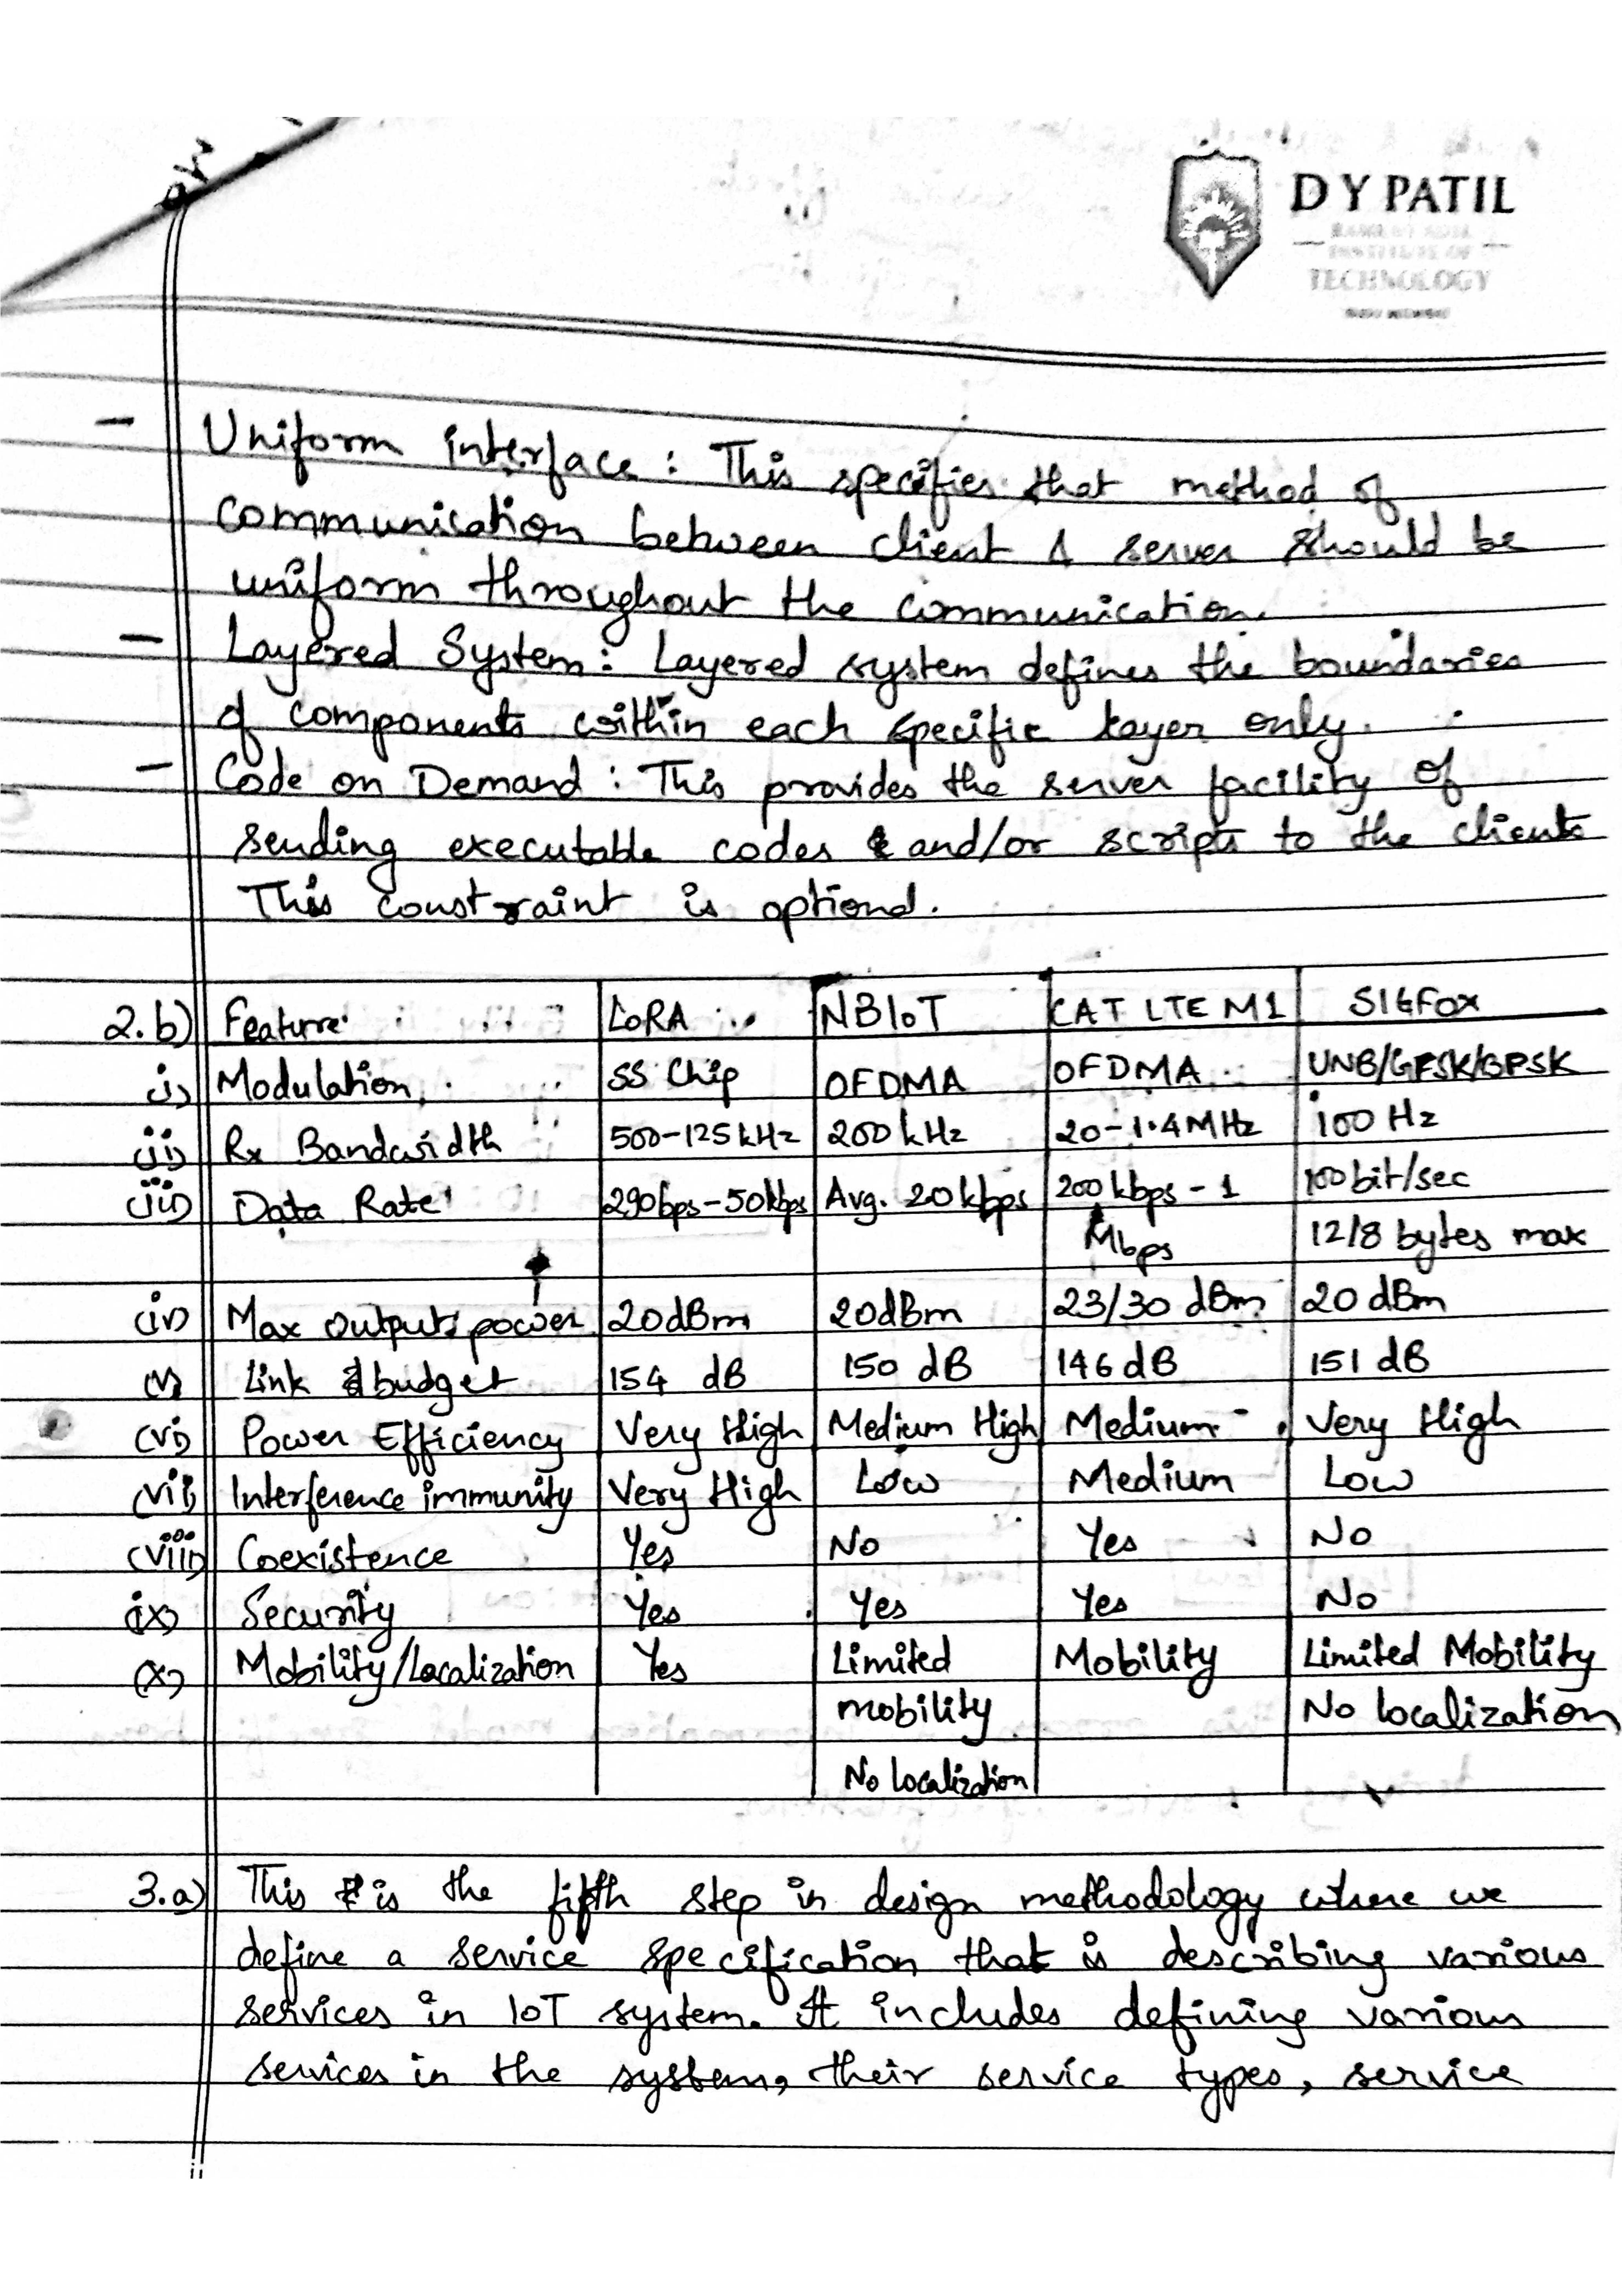 D Y PATIL
RAMRAO ADIK
INSTITUTE OF
TECHNOLOGY
NAVI MUMBAI
- Uniform interface : This specifies that method of
communication between client & server should be
uniform throughout the communication.
- Layered System : Layered system defines the boundaries
of components within each specific layer only.
- Code on Demand : This provides the server facility of
sending executable codes and/or scripts to the clients
This constraint is optional.
2.b) Feature LoRA NBIoT CAT LTE M1 SIGFOX
i) Modulation SS Chip OFDMA OFDMA UNB/GFSK/BPSK
ii) Rx Bandwidth 500-125 kHz 200 kHz 20-1.4 MHz 100 Hz
iii) Data Rate 290bps-50kbps Avg. 20 kbps 200 kbps - 1 100 bit/sec
Mbps 12/8 bytes max
(iv) Max output power 20dBm 20dBm 23/30 dBm 20 dBm
(v) Link budget 154 dB 150 dB 146 dB 151 dB
(vi) Power Efficiency Very High Medium High Medium Very High
(vii) Interference immunity Very High Low Medium Low
(viii) Coexistence Yes No Yes No
(ix) Security Yes Yes Yes No
(x) Mobility/Localization Yes Limited Mobility Limited Mobility
mobility No localization
No localization
3.a) This is the fifth step in design methodology where we
define a service specification that is describing various
services in IoT system. It includes defining various
services in the system, their service types, service